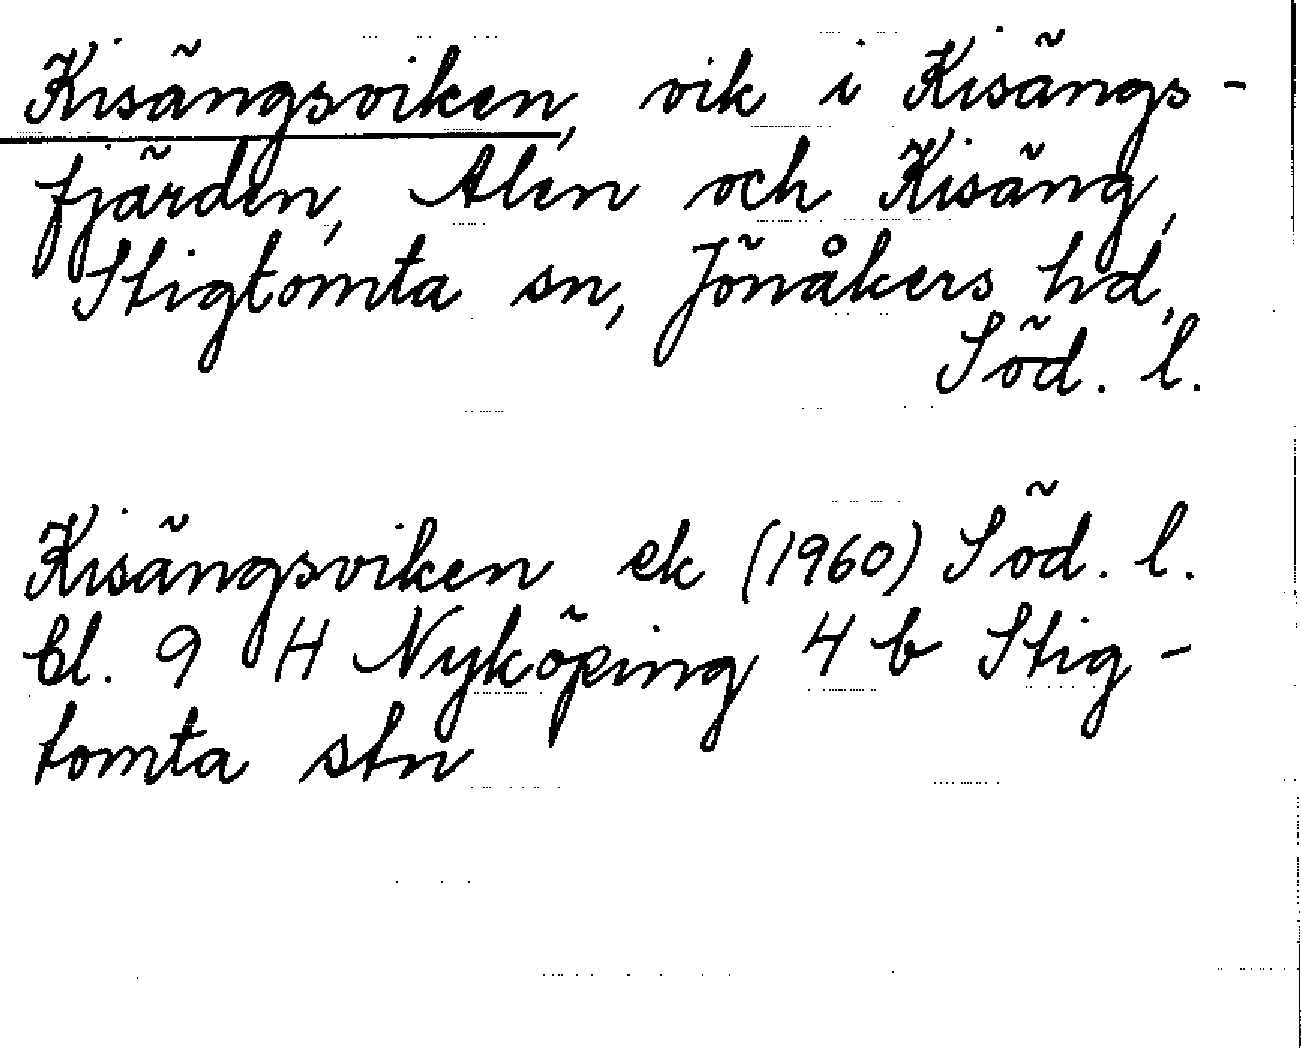 Kisängsviken, vik i Kisängs-
fjärden, Alen och Kisäng,
Stigtomta sn, Jönåkers hd,
Söd. l.
Kisängsviken ek (1960) Söd. l.
bl. 9 H Nyköping 4 b Stig-
tomta stn